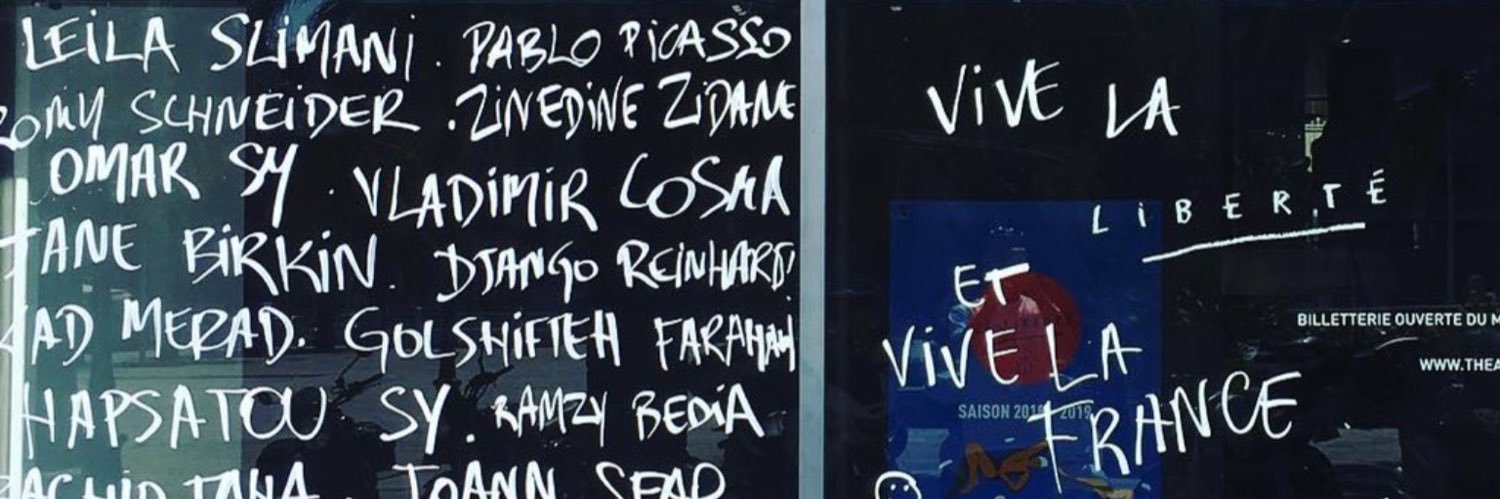 LEiLA SLiMANi . PABLO PiCASSO
ROMY SCHNEiDER . ZiNEDiNE ZiDANE
OMAR SY . VLADiMiR COSMA
JANE BiRKiN . DJANGO REiNHARDT
KAD MERAD . GOLSHiFTEH FARAHANi
HAPSATOU SY . RAMZY BEDiA
RACHID TAHA . JOANN SFAR
ViVE LA
LiBERTÉ
ET
ViVE LA
FRANCE
BILLETTERIE OUVERTE DU M
WWW.THEA
SAISON 2018 2019